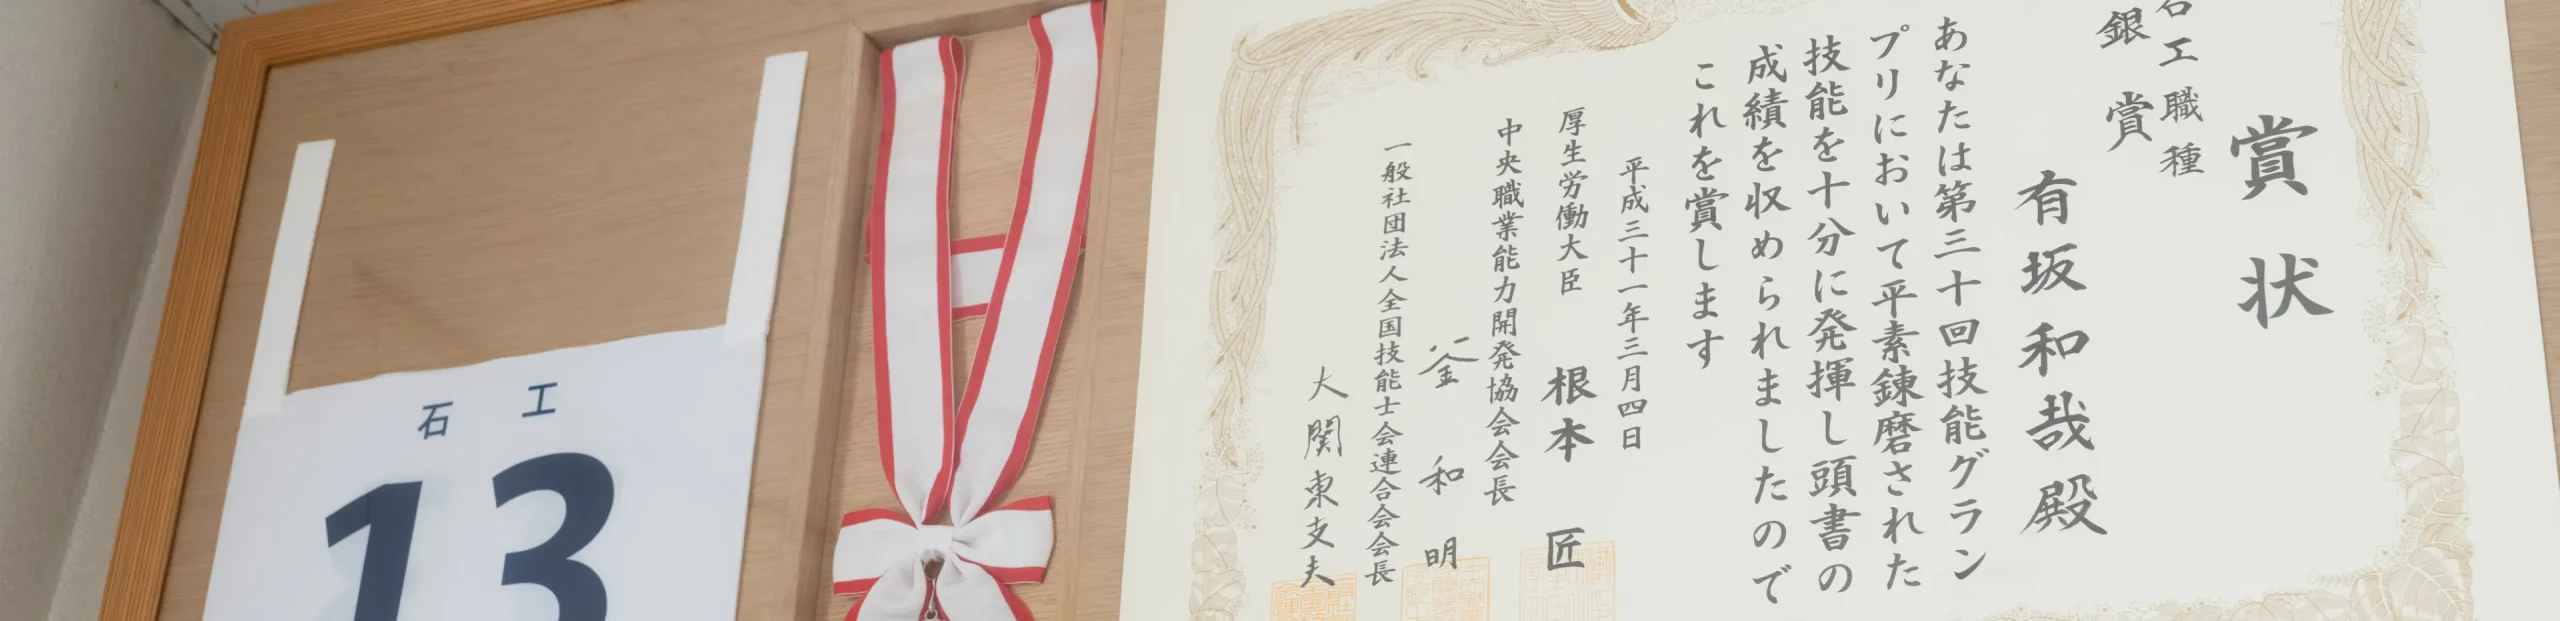 賞状
石工職種
銀賞
有坂和哉殿
あなたは第三十回技能グラン
プリにおいて平素錬磨された
技能を十分に発揮し頭書の
成績を収められましたので
これを賞します
平成三十一年三月四日
厚生労働大臣 根本匠
中央職業能力開発協会会長
釜和明
一般社団法人全国技能士会連合会会長
大関東支夫
石工
13